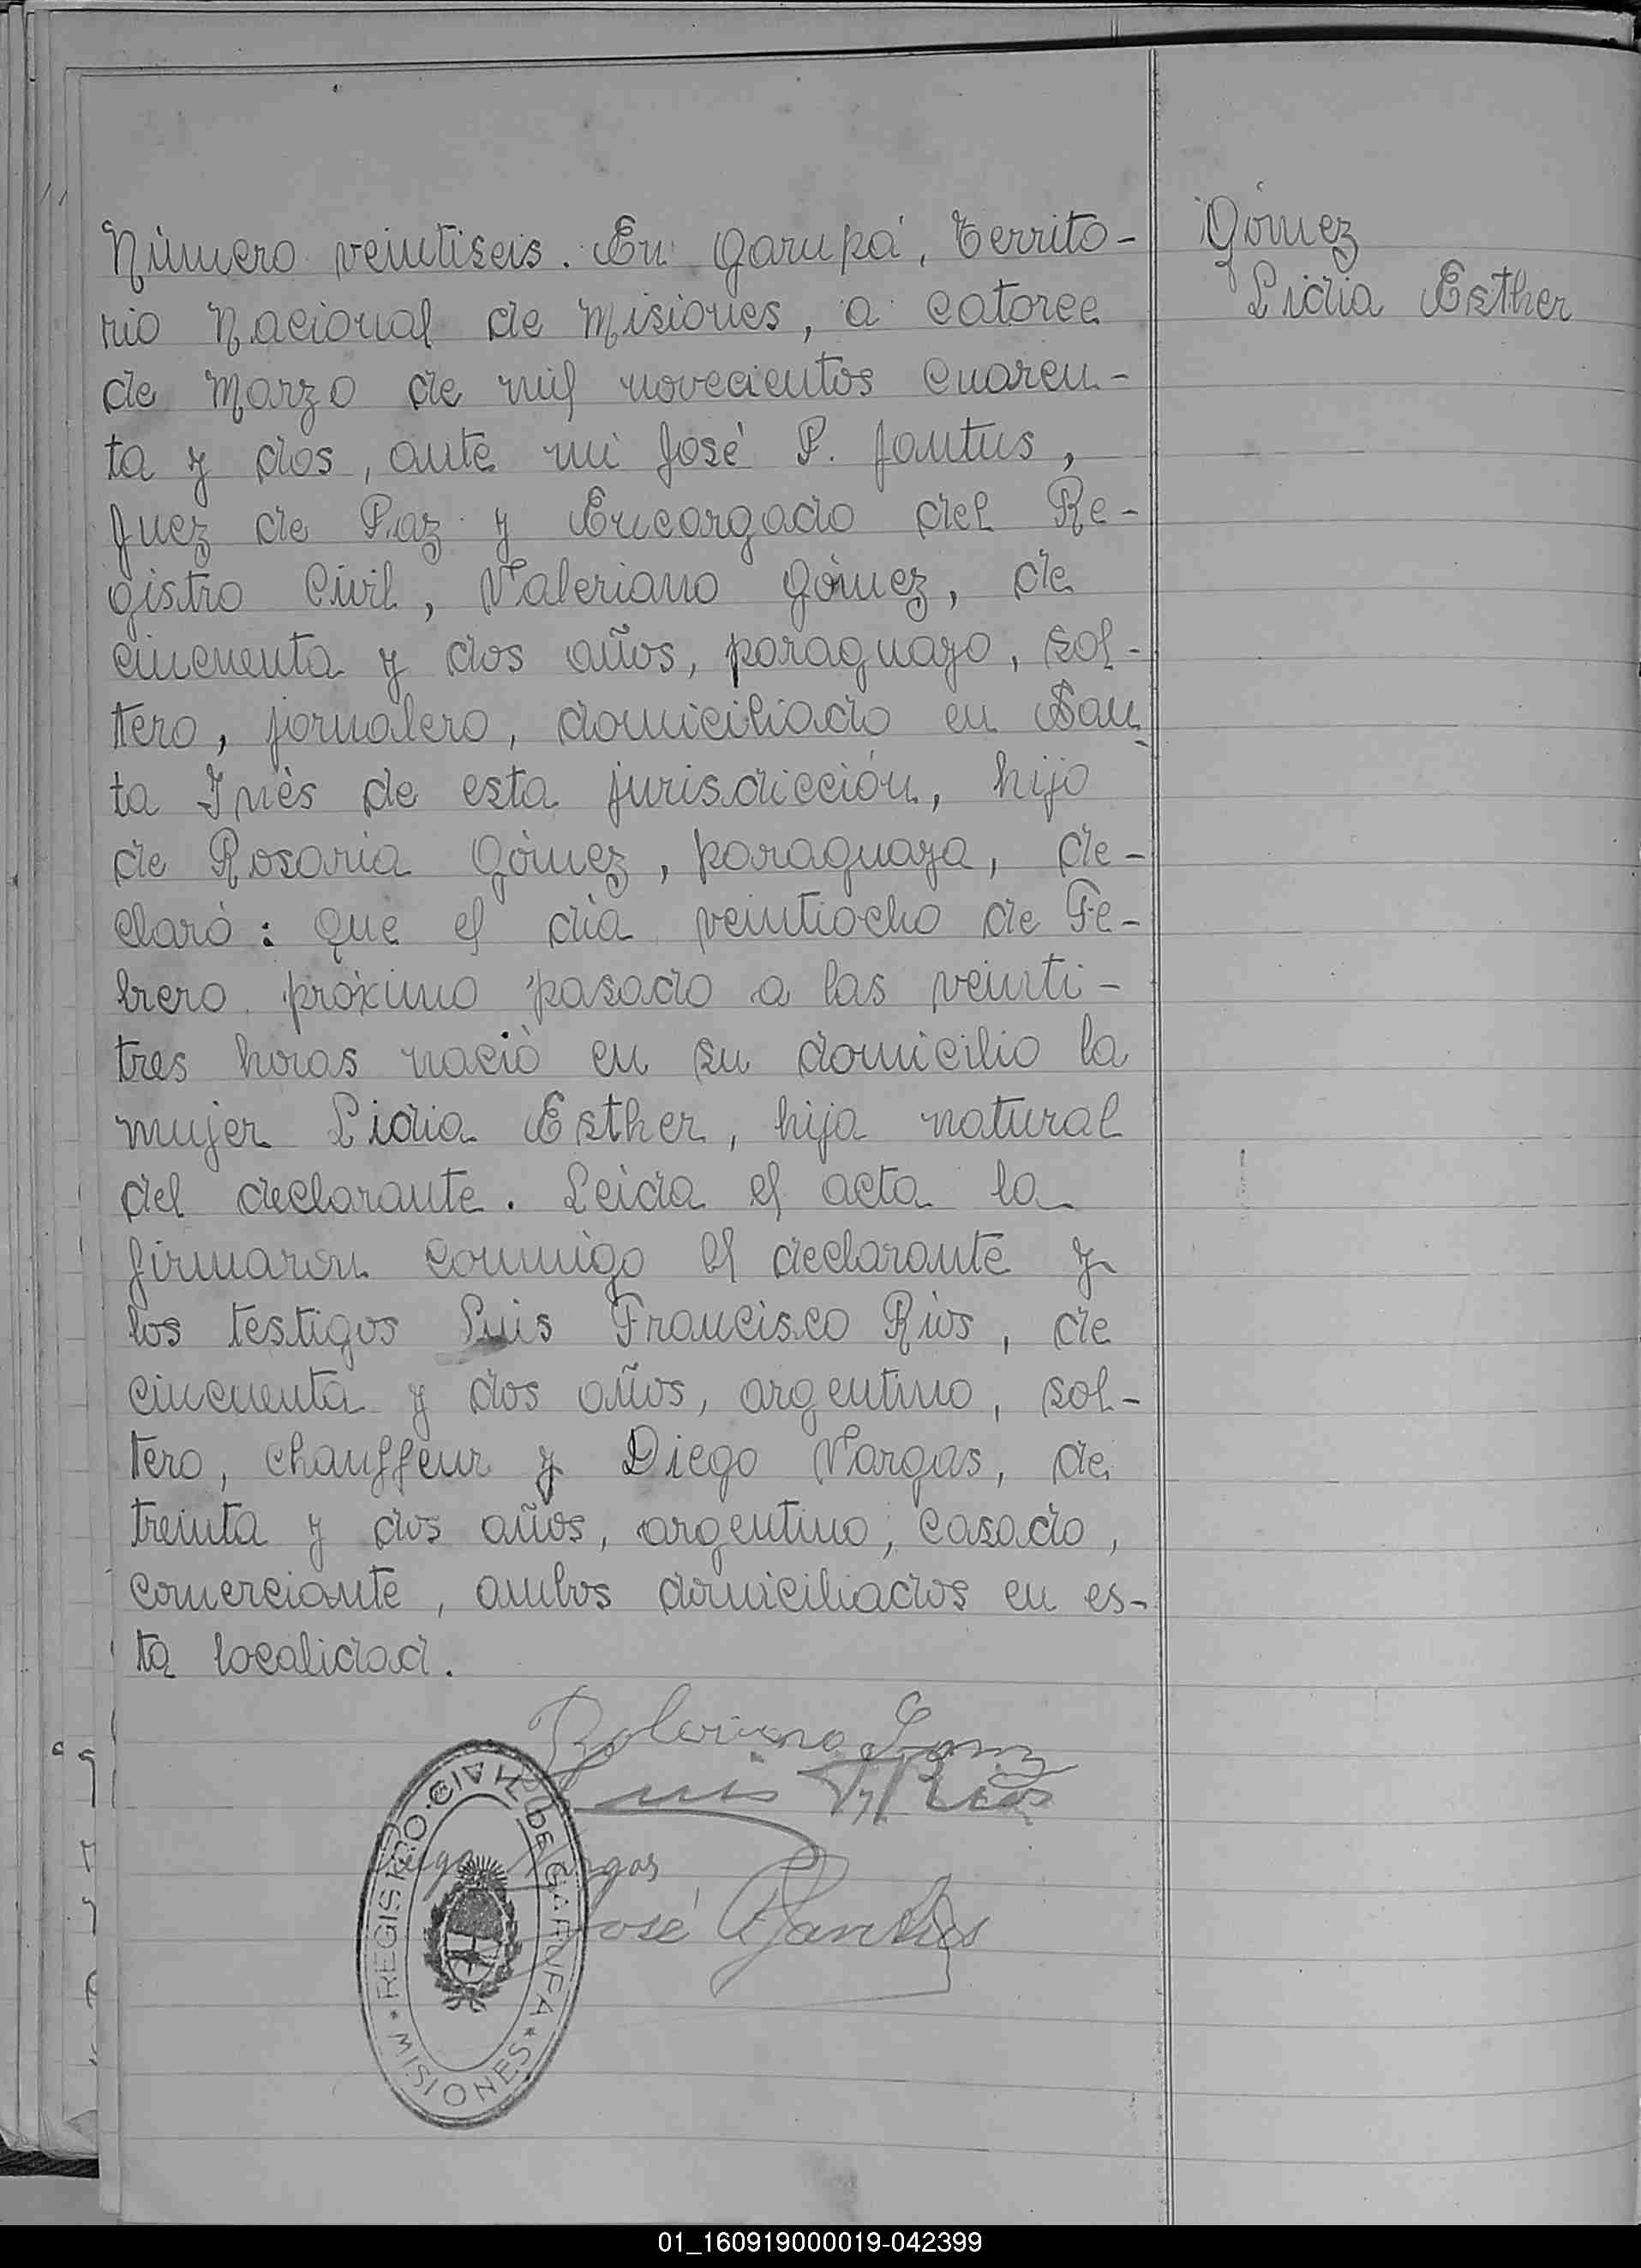 Número veintiseis. En Garupá, Territo-
rio Nacional de Misiones, a catorce
de Marzo de mil novecientos cuaren-
ta y dos, ante mi José P. Jantus,
Juez de Paz y Encargado del Re-
gistro Civil, Valeriano Gómez, de
cincuenta y dos años, paraguayo, sol-
tero, jornalero, domiciliado en San
ta Inés de esta jurisdicción, hijo
de Rosaria Gómez, paraguaya, de-
claró: Que el día veintiocho de Fe-
brero próximo pasado a las veinti-
tres horas nació en su domicilio la
mujer Lidia Esther, hija natural
del declarante. Leida el acta la
firmaron conmigo el declarante y
los testigos Luis Francisco Rios, de
cincuenta y dos años, argentino, sol-
tero, chauffeur y Diego Vargas, de
treinta y dos años, argentino, casado,
comerciante, ambos domiciliados en es-
ta localidad.
Gómez
Lidia Esther
Luis F. Rios
Diego Vargas
José P Jantus
REGISTRO CIVIL DE GARUPA
* MISIONES *
01_160919000019-042399